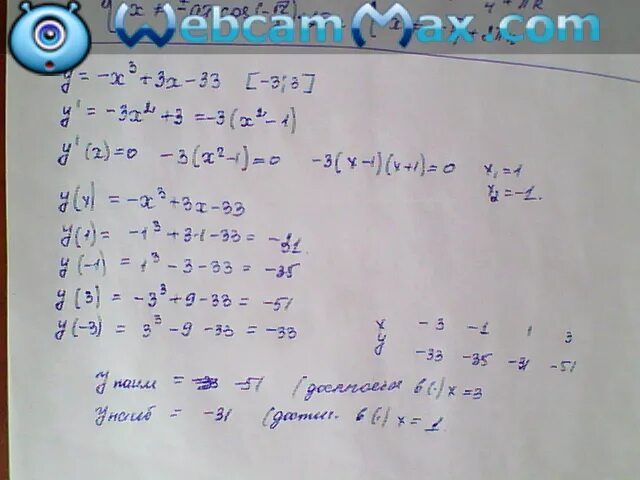 Webcam Max.com
y = -x³ + 3x - 33 [-3; 3]
y' = -3x² + 3 = -3(x² - 1)
y'(x) = 0 -3(x² - 1) = 0 -3(x - 1)(x + 1) = 0 x₁ = 1
x₂ = -1.
y(x) = -x³ + 3x - 33
y(1) = -1³ + 3·1 - 33 = -31.
y(-1) = 1³ - 3 - 33 = -35
y(3) = -3³ + 9 - 33 = -51
y(-3) = 3³ - 9 - 33 = -33
x -3 -1 1 3
y -33 -35 -31 -51
y наим = -51 (достигается в (·) x = 3
y наиб = -31 (достиг. в (·) x = 1.